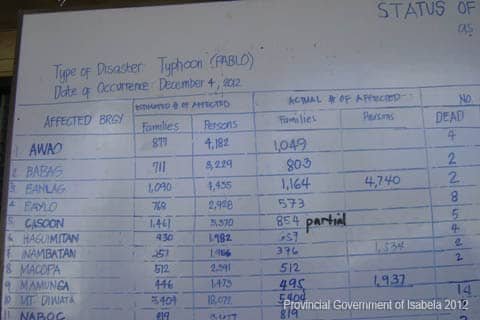 STATUS OF
as
Type of Disaster: Typhoon (PABLO)
Date of Occurrence: December 4, 2012
AFFECTED BRGY ESTIMATED # OF AFFECTED ACTUAL # OF AFFECTED NO.
Families Persons Families Persons DEAD
1 AWAO 877 4,182 1,049 4
2 BABAG 711 3,229 803 2
3 BANLAG 1,090 4,435 1,164 4,740 2
4 BAYLO 768 2,928 573 8
5 CASOON 1,461 3,370 854 partial 5
6 HAGUIMITAN 430 1,982 357 4
7 INAMBATAN 257 376 1,534 2
8 MACOPA 512 2,391 512 2
9 MAMUNGA 446 1,473 495 1,937
10 MT. DIWATA 3409 18,072 14
11 NABOC 819 819
Provincial Government of Isabela 2012